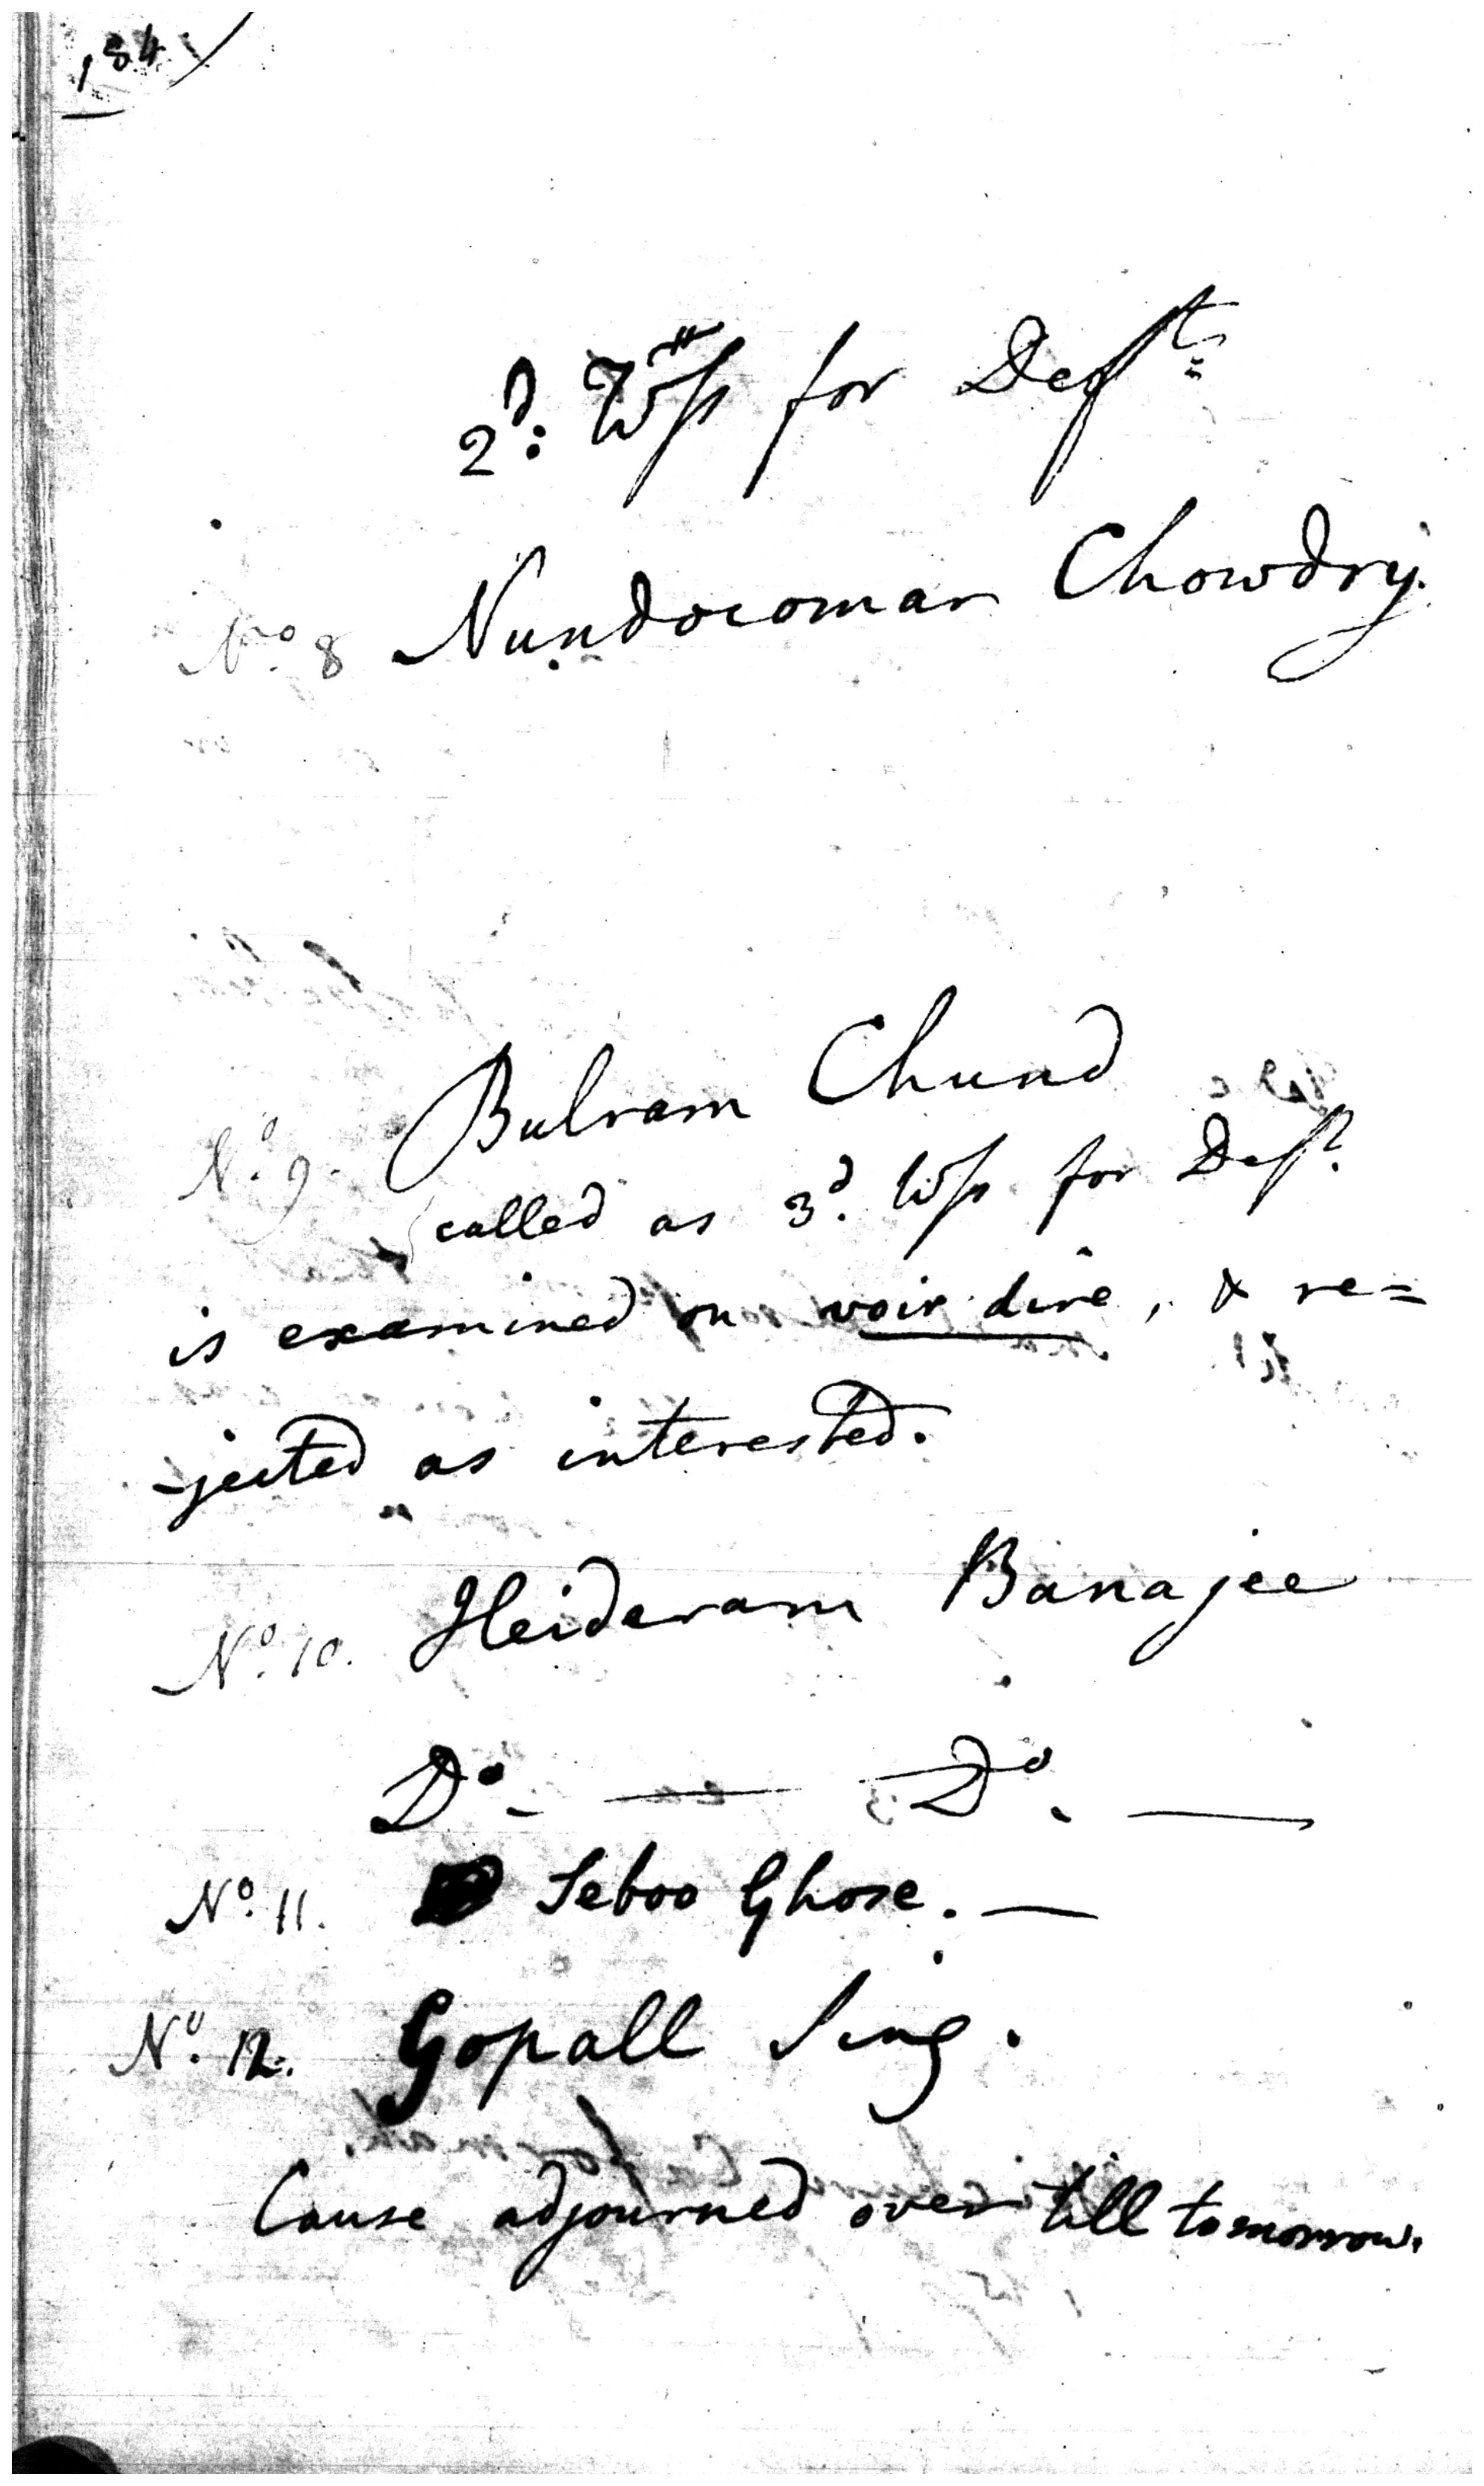 184
2d: Wss for Deft:
No. 8 Nundocomar Chowdry.
No. 9. Bulram Chund
called as 3d. Wss for Deft.
is examined on voir dire, & re=
-jected as interested.
No. 10. Heideram Banajee
Do. — Do. —
No. 11. Seboo Ghose. —
No. 12. Gopall Sing.
Cause adjourned over till tomorrow.